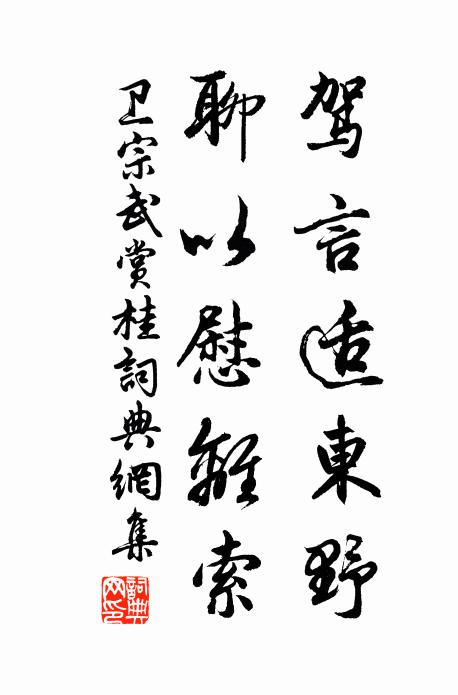 驾言适東野
聊以慰離索
卫宗武赏桂詞典網集
詞典網印